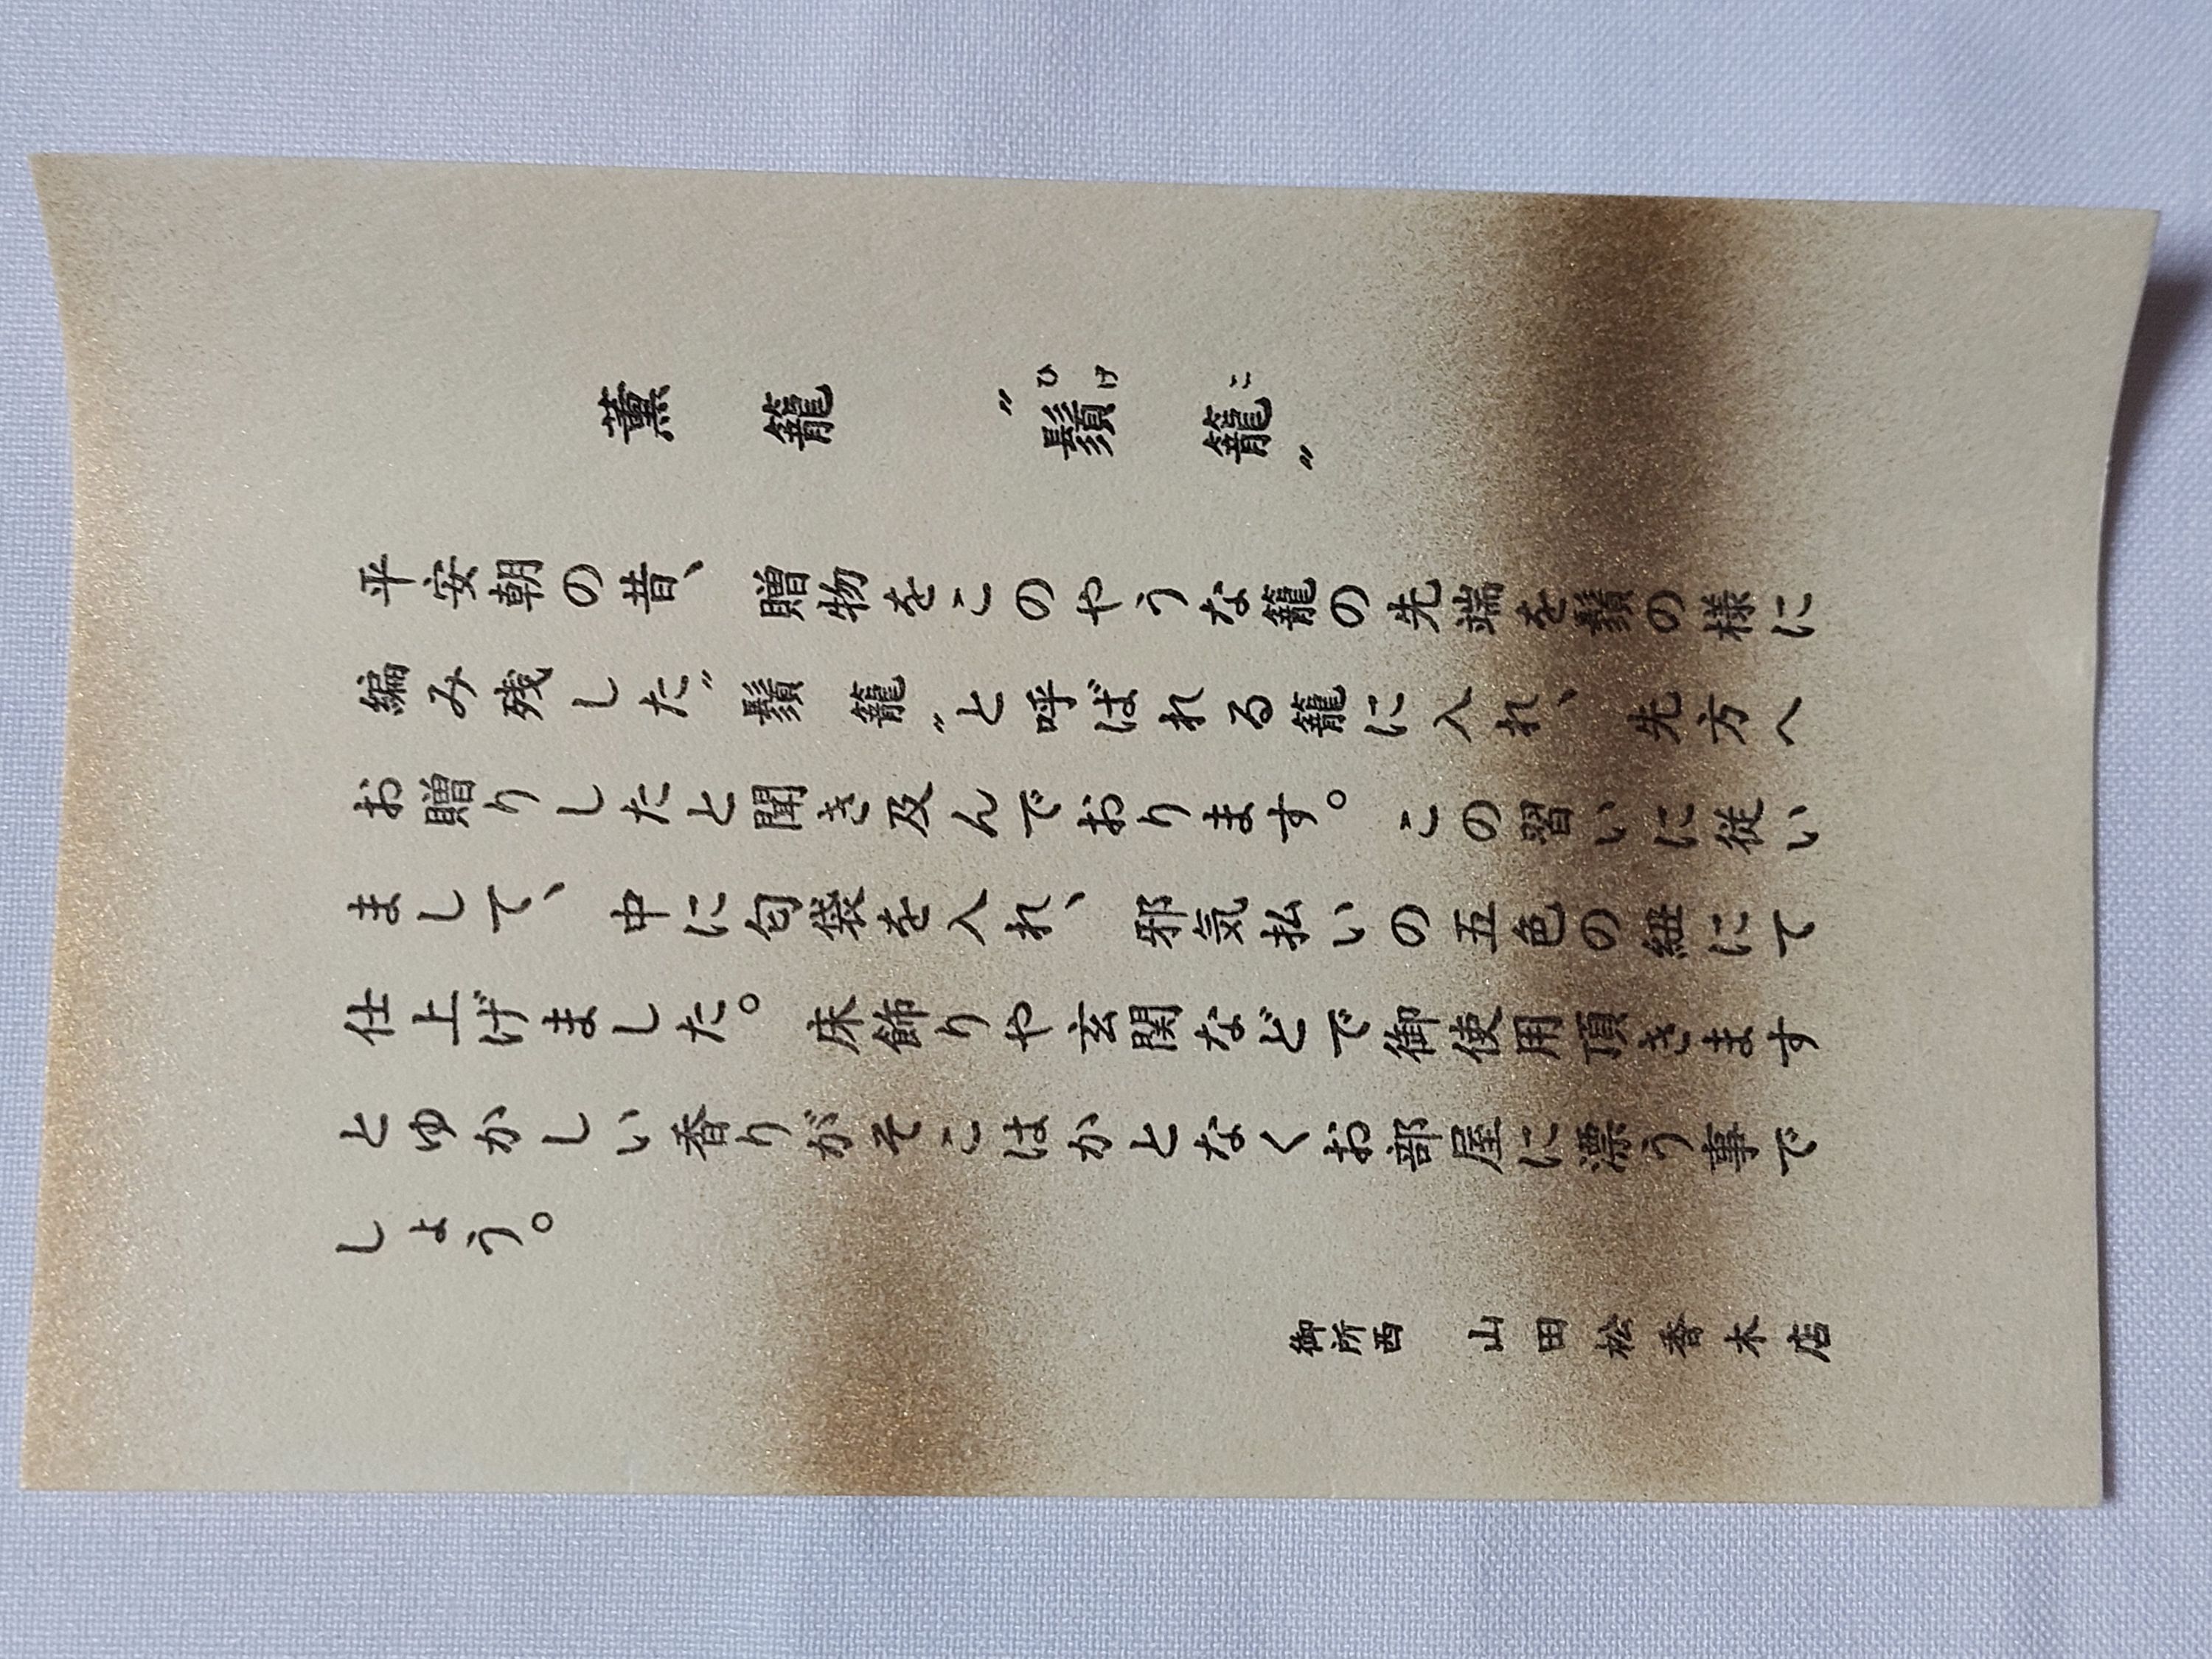 薫籠 〝鬚籠〟
ひげ こ
平安朝の昔、贈物をこのやうな籠の先端を鬚の様に
編み残した〝鬚籠〟と呼ばれる籠に入れ、先方へ
お贈りしたと聞き及んでおります。この習いに従い
まして、中に匂袋を入れ、邪気払いの五色の紐にて
仕上げました。床飾りや玄関などで御使用頂きます
とゆかしい香りがそこはかとなくお部屋に漂う事で
しょう。
御所西 山田松香木店